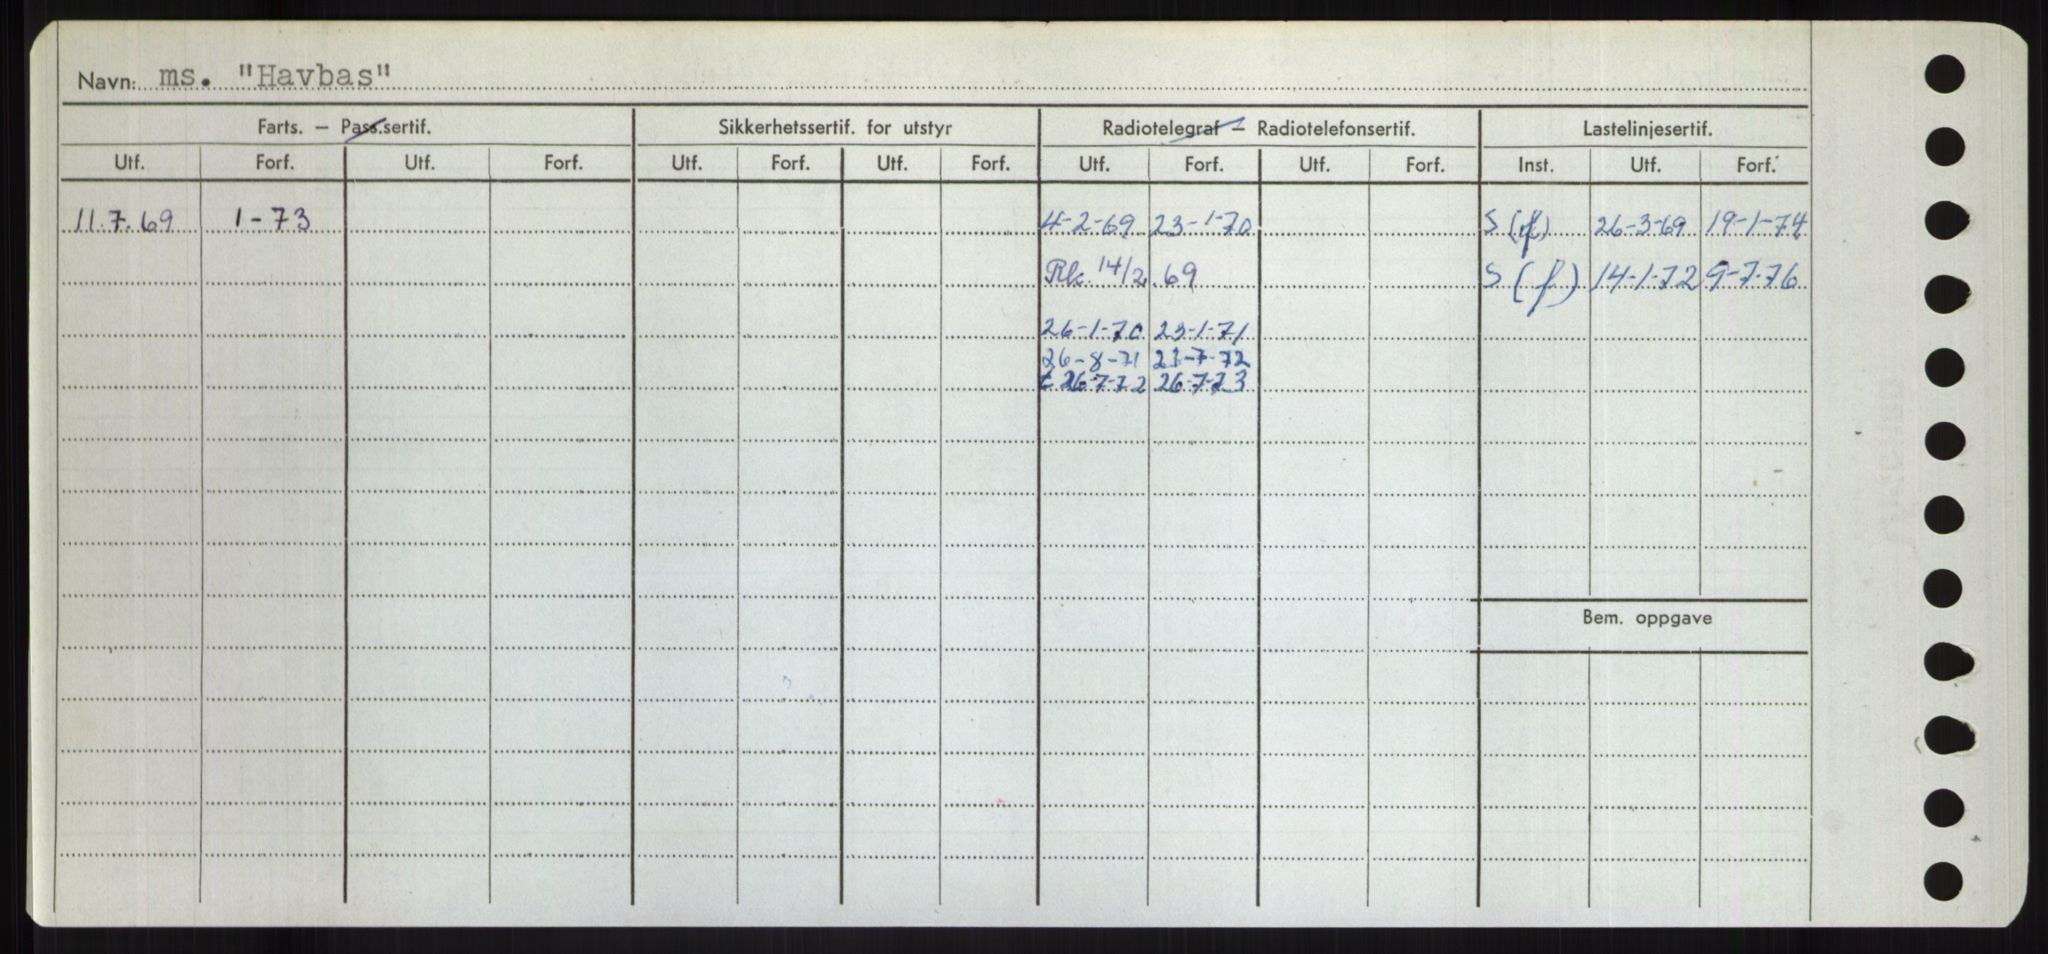 Navn: ms. "Havbas"
Farts. – Pass.sertif. Sikkerhetssertif. for utstyr Radiotelegraf – Radiotelefonsertif. Lastelinjesertif.
Utf. Forf. Utf. Forf. Utf. Forf. Utf. Forf. Utf. Forf. Utf. Forf. Inst. Utf. Forf.
11.7.69 1-73 4-2-69 23-1-70 S (f) 26-3-69 19-1-74
14/2.69 S (f) 14-1-72 9-7-76
26-1-70 23-1-71
26-8-71 23-7-72
26-7-72 26-7-73
Bem. oppgave